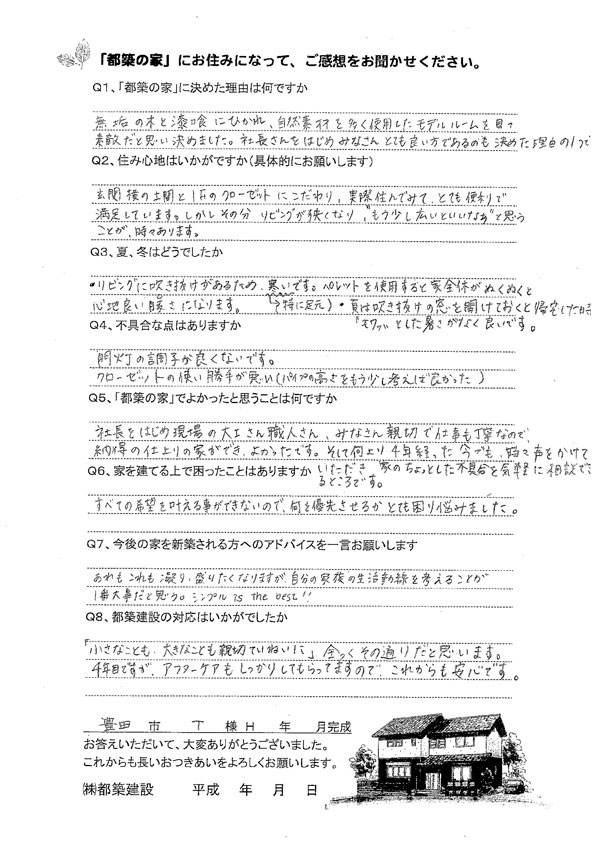 「都築の家」にお住みになって、ご感想をお聞かせください。
Q1、「都築の家」に決めた理由は何ですか
無垢の木と漆喰にひかれ、自然素材を多く使用したモデルルームを見て
素敵だと思い決めました。社長さんをはじめみなさんとても良い方であるのも決めた理由の1つで
Q2、住み心地はいかがですか(具体的にお願いします)
玄関横の土間と1Fのクローゼットにこだわり、実際住んでみて、とても便利で
満足しています。しかしその分リビングが狭くなり、"もう少し広いといいなあ"と思う
ことが、時々あります。
Q3、夏、冬はどうでしたか
・リビングに吹き抜けがあるため、寒いです。ペレットを使用すると家全体がぬくぬくと
心地良い暖さになります。 (特に足元)・夏は吹き抜けの窓を開けておくと帰宅した時
"モワッ"とした暑さがなく良いです。
Q4、不具合な点はありますか
門灯の調子が良くないです。
クローゼットの使い勝手が悪い(パイプの高さをもう少し考えば良かった)
Q5、「都築の家」でよかったと思うことは何ですか
社長をはじめ現場の大工さん職人さん、みなさん親切で仕事も丁寧なので、
納得の仕上りの家ができ、よかったです。そして何より4年経った今でも、時々声をかけて
いただき 家のちょっとした不具合を気軽に相談でき
るところです。
Q6、家を建てる上で困ったことはありますか
すべての希望を叶える事ができないので、何を優先させるかとても困り悩みました。
Q7、今後の家を新築される方へのアドバイスを一言お願いします
あれもこれも凝り、盛りたくなりますが、自分の家族の生活動線を考えることが
1番大事だと思う。シンプル is the best!!
Q8、都築建設の対応はいかがでしたか
「小さなことも、大きなことも親切ていねいに」全くその通りだと思います。
4年目ですが、アフターケアもしっかりしてもらってますので、これからも安心です。
豊田 市 T 様 H 年 月完成
お答えいただいて、大変ありがとうございました。
これからも長いおつきあいをよろしくお願いします。
㈱都築建設 平成 年 月 日